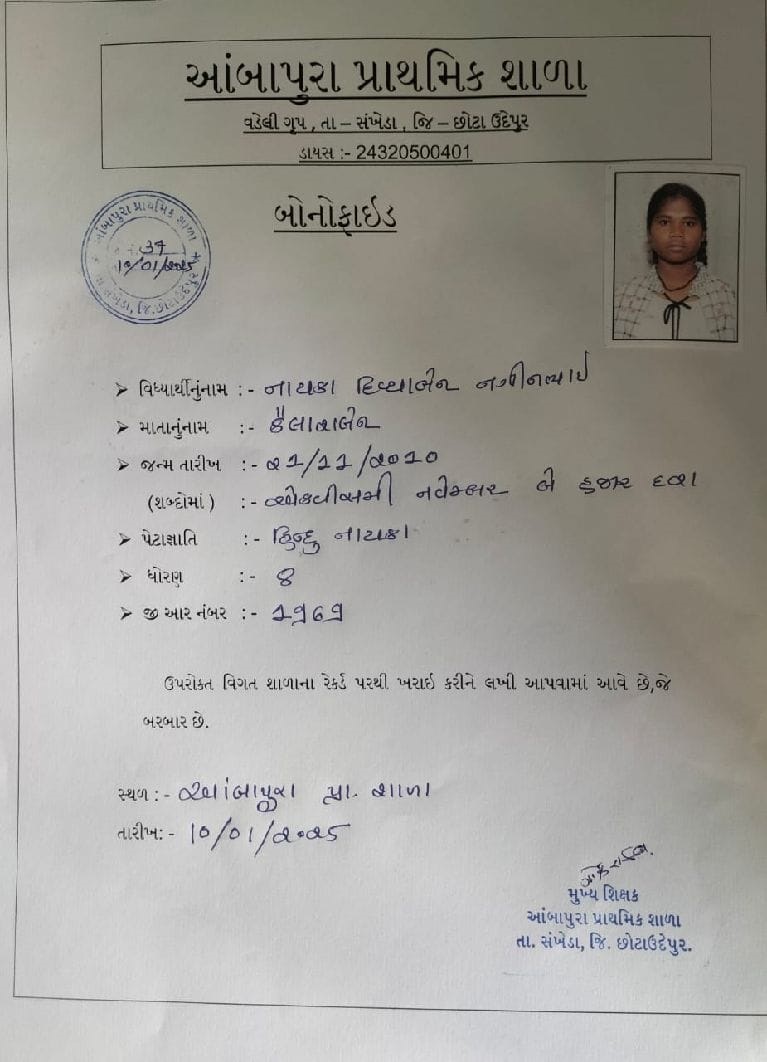 આંબાપુરા પ્રાથમિક શાળા
વડેલી ગૃપ , તા – સંખેડા , જિ – છોટા ઉદેપુર
ડાયસ :- 24320500401
બોનોફાઇડ
આંબાપુરા પ્રાથમિક શાળા
૩૧
૧૦/01/૨૦૨5
➤ વિધ્યાર્થીનુંનામ :- નાયકા દિવ્યાબેન નગીનભાઈ
➤ માતાનુંનામ :- કૈલાશબેન
➤ જન્મ તારીખ :- ૨૧/૧૧/૨૦૧૦
(શબ્દોમાં ) :- એકવીસમી નવેમ્બર બે હજાર દશ
➤ પેટાજ્ઞાતિ :- હિન્દુ નાયકા
➤ ધોરણ :- ૪
➤ જી આર નંબર :- ૧૭૬૧
ઉપરોકત વિગત શાળાના રેકર્ડ પરથી ખરાઇ કરીને લખી આપવામાં આવે છે,જે
બરબાર છે.
સ્થળ :- આંબાપુરા પ્રા. શાળા
તારીખ:- ૧૦/01/૨૦૨5
મુખ્ય શિક્ષક
આંબાપુરા પ્રાથમિક શાળા
તા. સંખેડા, જિ. છોટાઉદેપુર.